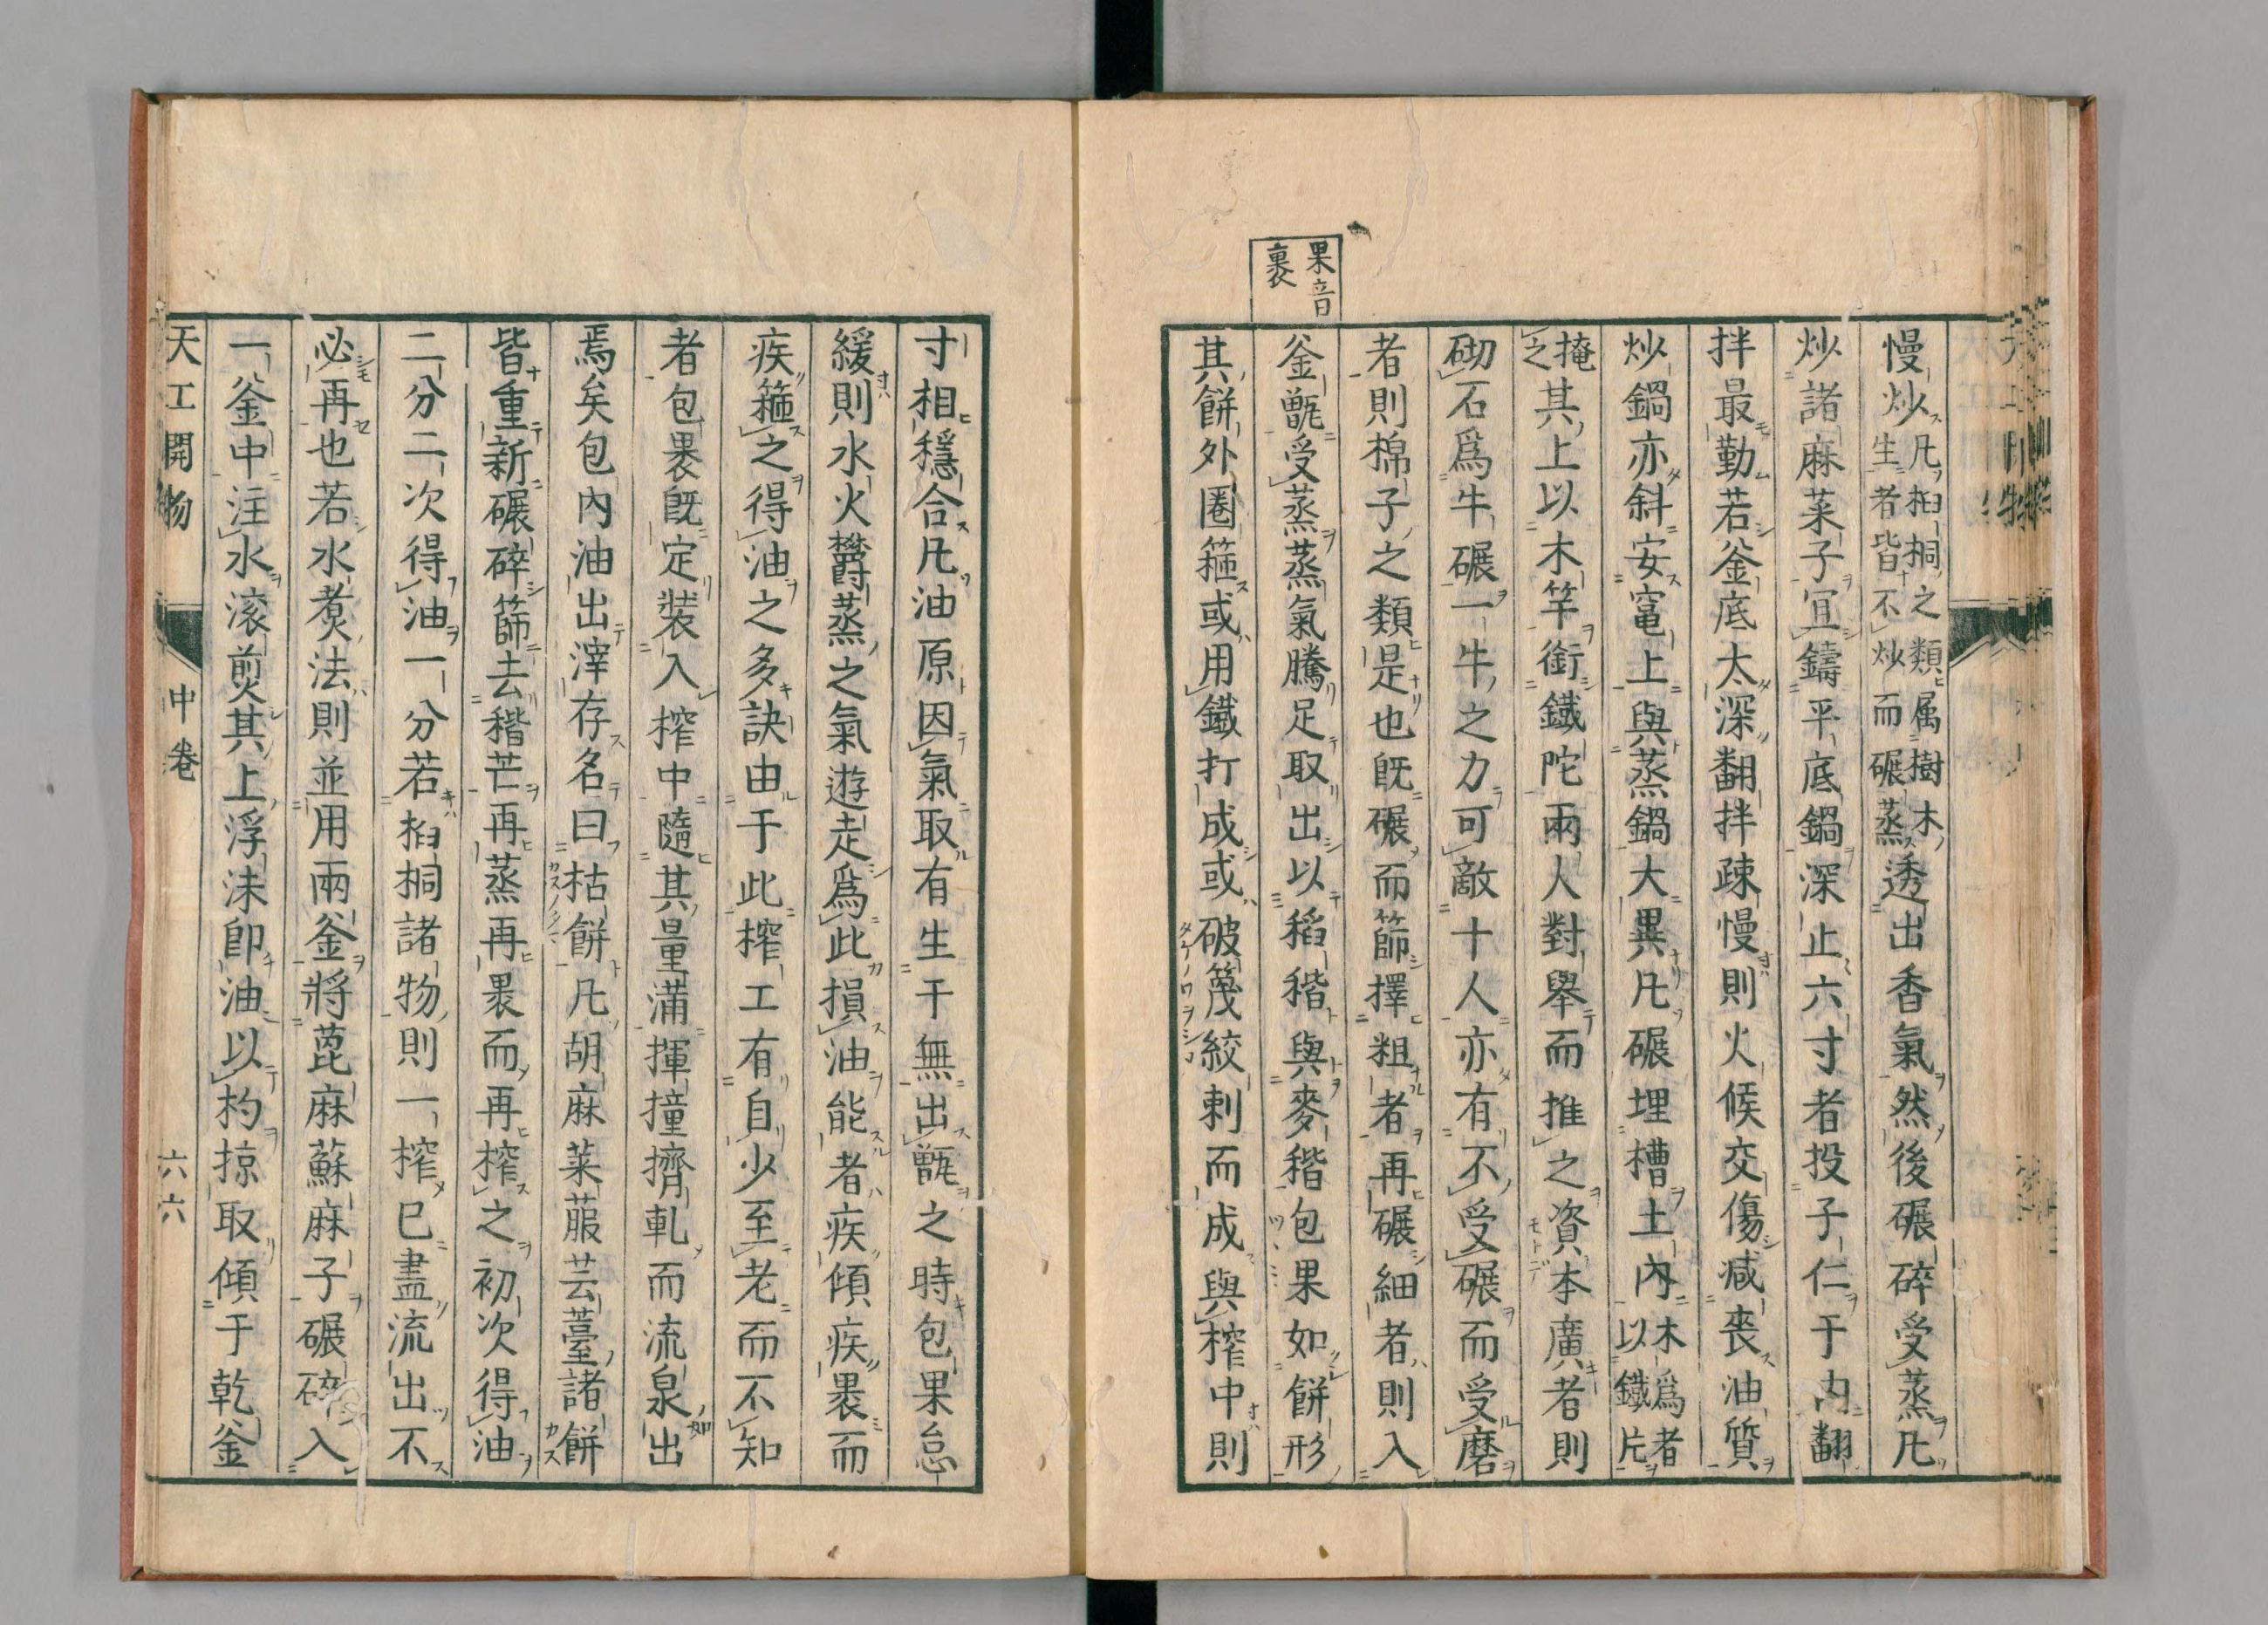 慢炒凡桕桐之類属樹木
生者皆不炒而碾蒸透出香氣然後碾碎受蒸凡
炒諸麻菜子宜鑄平底鍋深止六寸者投子仁于内翻
拌最勤若釜底太深翻拌疎慢則火候交傷減喪油質
炒鍋亦斜安竃上與蒸鍋大異凡碾埋槽土內木爲者
以鐵片
掩之其上以木竿銜鐵陀兩人對舉而推之資本廣者則
砌石爲牛碾一牛之力可敵十人亦有不受碾而受磨
者則棉子之類是也既碾而篩擇粗者再碾細者則入
果音
裹
釜甑受蒸蒸氣騰足取出以稻稭與麥稭包果如餅形
其餅外圈箍或用鐵打成或破篾絞刺而成與榨中則
寸相穩合凡油原因氣取有生于無出甑之時包果怠
緩則水火欝蒸之氣遊走爲此損油能者疾傾疾裹而
疾箍之得油之多訣由于此榨工有自少至老而不知
者包裹既定裝入榨中隨其量滿揮撞擠軋而流泉出
焉矣包內油出滓存名曰枯餅凡胡麻菜菔芸薹諸餅
皆重新碾碎篩去稭芒再蒸再裹而再榨之初次得油
二分二次得油一分若桕桐諸物則一榨已盡流出不
必再也若水煑法則並用兩釜將蓖麻蘇麻子碾碎入
一釜中注水滾煎其上浮沫卽油以杓掠取傾于乾釜
天工開物 中卷 六六